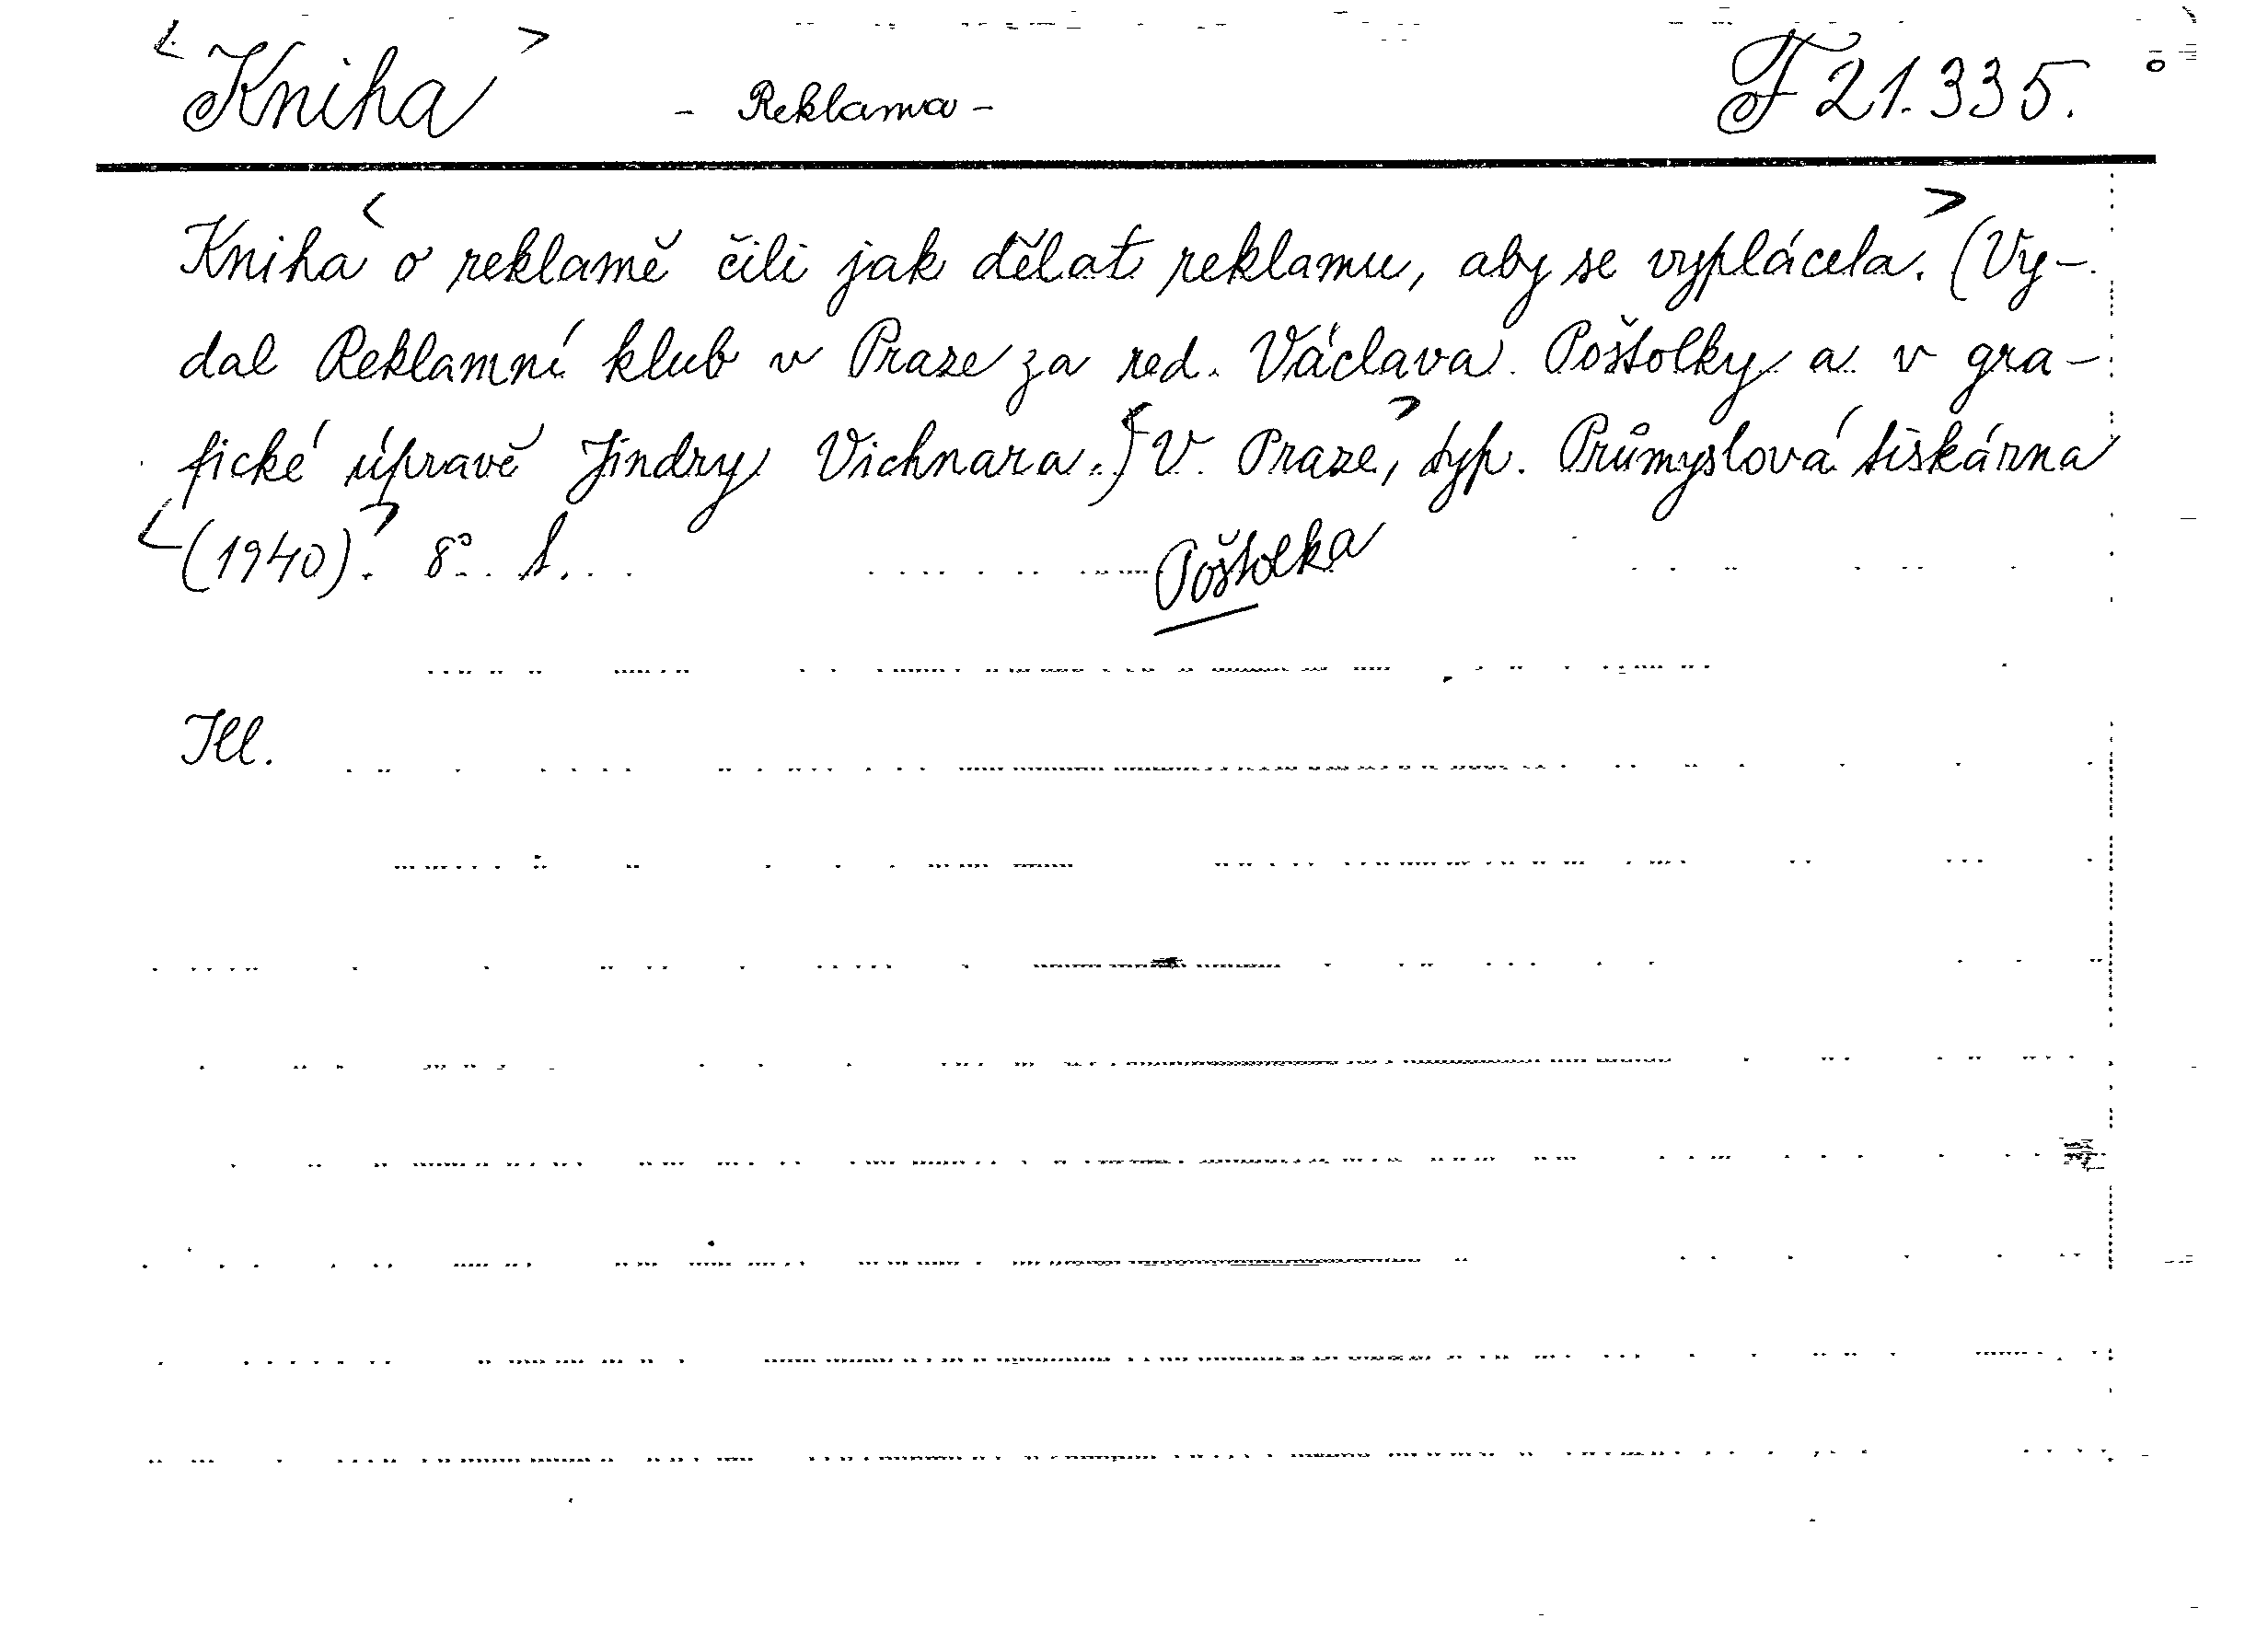 <Kniha> - Reklama - F 21.335.
Kniha <o reklamě čili jak dělat reklamu, aby se vyplácela.> (Vy-
dal Reklamní klub v Praze za red. Václava Poštolky a v gra-
fické úpravě Jindry Vichnara.) <V Praze,> typ. Průmyslová tiskárna
<(1940).> 8°. s.
Poštolka
Ill.